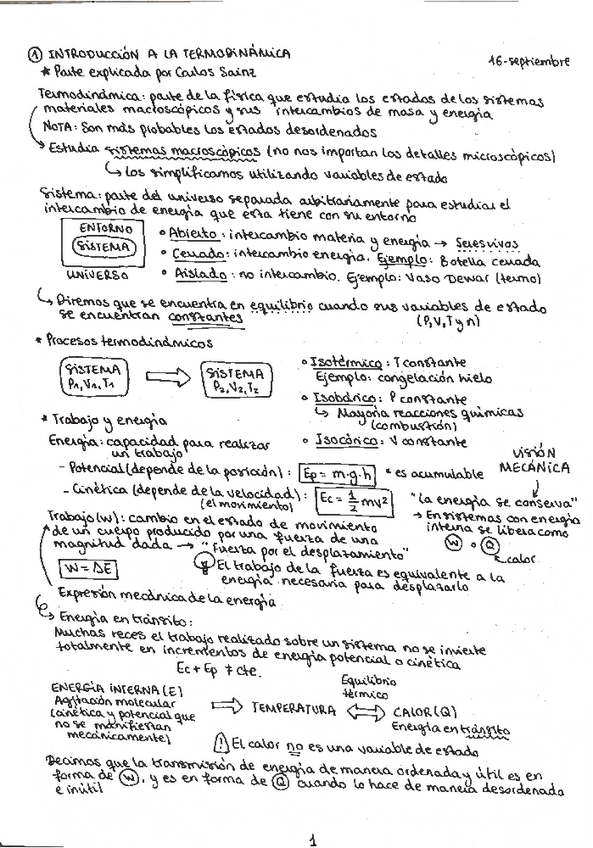 ① INTRODUCCIÓN A LA TERMODINÁMICA
16-septiembre
* Parte explicada por Carlos Sainz
Termodinámica: parte de la física que estudia los estados de los sistemas
materiales macroscópicos y sus intercambios de masa y energía
NOTA: Son más probables los estados desordenados
Estudia sistemas macroscópicos (no nos importan los detalles microscópicos)
↳ Los simplificamos utilizando variables de estado
Sistema: parte del universo separada arbitrariamente para estudiar el
intercambio de energía que esta tiene con su entorno
ENTORNO
SISTEMA
UNIVERSO
• Abierto: intercambio materia y energía → Seres vivos
• Cerrado: intercambio energía. Ejemplo: Botella cerrada
• Aislado: no intercambio. Ejemplo: Vaso Dewar (termo)
↳ Diremos que se encuentra en equilibrio cuando sus variables de estado
se encuentran constantes
(P,V,T y n)
* Procesos termodinámicos
SISTEMA
P₁,V₁,T₁
SISTEMA
P₂,V₂,T₂
• Isotérmico: T constante
Ejemplo: congelación hielo
• Isobárico: P constante
↳ Mayoría reacciones químicas
(combustión)
• Isocórico: V constante
* Trabajo y energía
Energía: capacidad para realizar
un trabajo
- Potencial (depende de la posición): Ep = m·g·h * es acumulable
- Cinética (depende de la velocidad): Ec = 1/2 mv²
(el movimiento)
VISIÓN
MECÁNICA
"la energía se conserva"
→ En sistemas con energía
interna se libera como
W o Q
calor
Trabajo (W): cambio en el estado de movimiento
de un cuerpo producido por una fuerza de una
magnitud dada → "fuerza por el desplazamiento"
El trabajo de la fuerza es equivalente a la
energía necesaria para desplazarlo
W = ΔE
Expresión mecánica de la energía
↳ Energía en tránsito:
Muchas veces el trabajo realizado sobre un sistema no se invierte
totalmente en incrementos de energía potencial o cinética
Ec + Ep ≠ cte.
ENERGÍA INTERNA (E)
Agitación molecular
(cinética y potencial que
no se manifiestan
mecánicamente)
TEMPERATURA
Equilibrio
térmico
CALOR (Q)
Energía en tránsito
El calor no es una variable de estado
Decimos que la transmisión de energía de manera ordenada y útil es en
forma de W, y es en forma de Q cuando lo hace de manera desordenada
e inútil
1